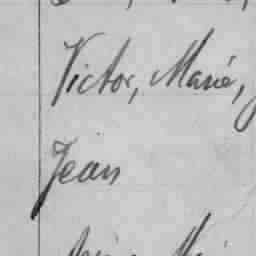 Victor, Marie,
Jean